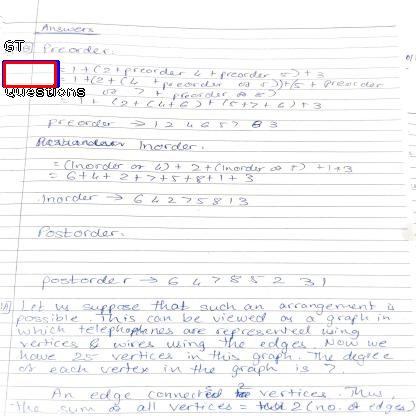 Answers
GT
Preorder:
= 1 + (2 + preorder 4 + preorder 5) + 3
= 1 + (2 + (4 + preorder of 5)) + (5 + preorder
of 7 + preorder of 8)
= 1 + (2 + (4 + 6) + (5 + 7 + 8) + 3
Questions
preorder → 1 2 4 6 5 7 8 3
Inorder.
= (Inorder of 4) + 2 + (Inorder of 5) + 1 + 3
= 6 + 4 + 2 + 7 + 5 + 8 + 1 + 3
Inorder → 6 4 2 7 5 8 1 3
Postorder.
postorder → 6 4 7 8 5 2 3 1
Let us suppose that such an arrangement is
possible. This can be viewed as a graph in
which telephones are represented using
vertices & wires using the edges. Now we
have 25 vertices in this graph. The degree
of each vertex in the graph is 7.
An edge connects 2 vertices. Thus,
the sum of all vertices = 2 (no. of edges)